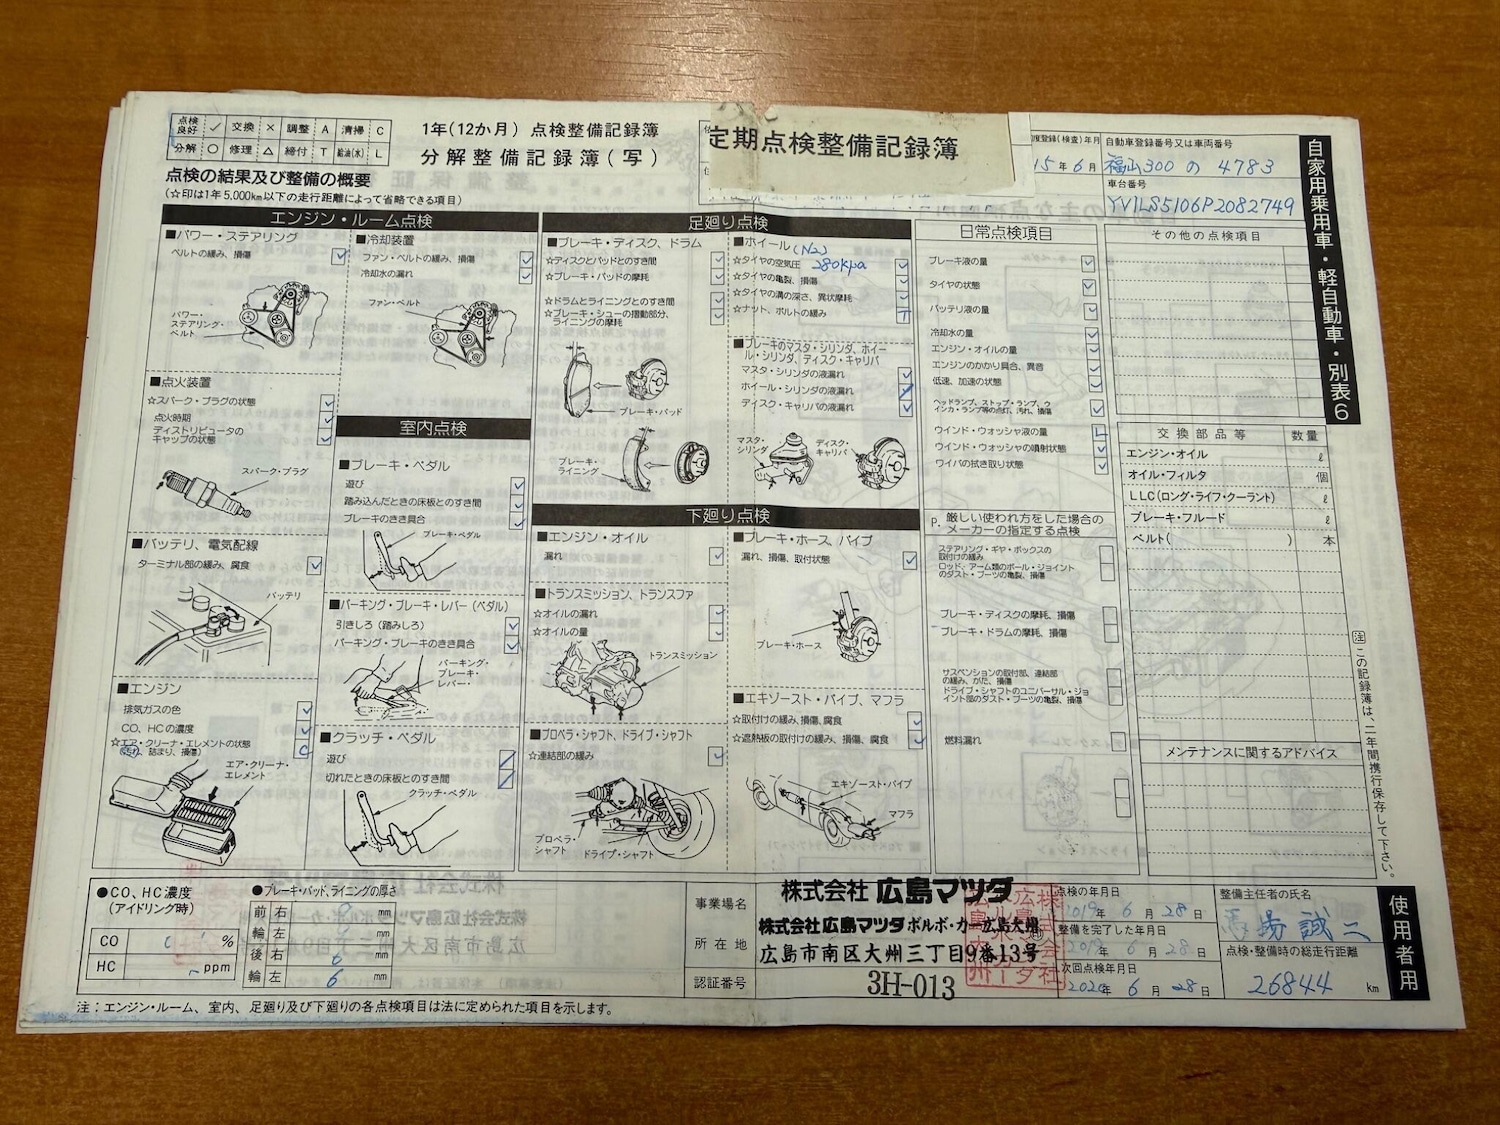 点検良好 ✓ 交換 × 調整 A 清掃 C
分解 ○ 修理 △ 締付 T 給油(水) L
1年(12か月) 点検整備記録簿
分解整備記録簿(写)
定期点検整備記録簿
点検の結果及び整備の概要
(☆印は1年5,000km以下の走行距離によって省略できる項目)
15年6月
自動車登録番号又は車両番号
福山300 の 4783
車台番号
YV1LS5106P2082749
自家用乗用車・軽自動車・別表6
エンジン・ルーム点検
■パワー・ステアリング
ベルトの緩み、損傷
パワー・
ステアリング・
ベルト
■冷却装置
ファン・ベルトの緩み、損傷
冷却水の漏れ
ファン・ベルト
■点火装置
☆スパーク・プラグの状態
点火時期
ディストリビュータの
キャップの状態
スパーク・プラグ
■バッテリ、電気配線
ターミナル部の緩み、腐食
バッテリ
■エンジン
排気ガスの色
CO、HCの濃度
☆エア・クリーナ・エレメントの状態
(汚れ、詰まり、損傷)
エア・クリーナ・
エレメント
室内点検
■ブレーキ・ペダル
遊び
踏み込んだときの床板とのすき間
ブレーキのきき具合
ブレーキ・ペダル
■パーキング・ブレーキ・レバー(ペダル)
引きしろ(踏みしろ)
パーキング・ブレーキのきき具合
パーキング・
ブレーキ・
レバー・
■クラッチ・ペダル
遊び
切れたときの床板とのすき間
クラッチ・ペダル
足廻り点検
■ブレーキ・ディスク、ドラム
☆ディスクとパッドとのすき間
☆ブレーキ・パッドの摩耗
☆ドラムとライニングとのすき間
☆ブレーキ・シューの摺動部分、
ライニングの摩耗
ブレーキ・パッド
ブレーキ・
ライニング
■ホイール (N2)
☆タイヤの空気圧 280kpa
☆タイヤの亀裂、損傷
☆タイヤの溝の深さ、異状摩耗
☆ナット、ボルトの緩み T
■ブレーキのマスタ・シリンダ、ホイー
ル・シリンダ、ディスク・キャリパ
マスタ・シリンダの液漏れ
ホイール・シリンダの液漏れ
ディスク・キャリパの液漏れ
マスタ・
シリンダ
ディスク・
キャリパ
下廻り点検
■エンジン・オイル
漏れ
■トランスミッション、トランスファ
☆オイルの漏れ
☆オイルの量
トランスミッション
■プロペラ・シャフト、ドライブ・シャフト
☆連結部の緩み
プロペラ・
シャフト
ドライブ・シャフト
■ブレーキ・ホース、パイプ
漏れ、損傷、取付状態
ブレーキ・ホース
■エキゾースト・パイプ、マフラ
☆取付けの緩み、損傷、腐食
☆遮熱板の取付けの緩み、損傷、腐食
エキゾースト・パイプ
マフラ
日常点検項目
ブレーキ液の量
タイヤの状態
バッテリ液の量
冷却水の量
エンジン・オイルの量
エンジンのかかり具合、異音
低速、加速の状態
ヘッドランプ、ストップ・ランプ、ウ
インカ・ランプ等の点灯、汚れ、損傷
ウインド・ウォッシャ液の量
ウインド・ウォッシャの噴射状態
ワイパの拭き取り状態
P. 厳しい使われ方をした場合の
メーカーの指定する点検
ステアリング・ギヤ・ボックスの
取付けの緩み
ロッド、アーム類のボール・ジョイント
のダスト・ブーツの亀裂、損傷
ブレーキ・ディスクの摩耗、損傷
ブレーキ・ドラムの摩耗、損傷
サスペンションの取付部、連結部
の緩み、がた、損傷
ドライブ・シャフトのユニバーサル・ジョ
イント部のダスト・ブーツの亀裂、損傷
燃料漏れ
その他の点検項目
交換部品等 数量
エンジン・オイル ℓ
オイル・フィルタ 個
LLC(ロング・ライフ・クーラント) ℓ
ブレーキ・フルード ℓ
ベルト( ) 本
メンテナンスに関するアドバイス
注 この記録簿は、二年間携行保存して下さい。
●CO、HC濃度
(アイドリング時)
CO %
HC ppm
●ブレーキ・パッド、ライニングの厚さ
前輪 右 mm
左 mm
後輪 右 6 mm
左 6 mm
事業場名
所在地
認証番号
株式会社 広島マツダ
株式会社広島マツダ ボルボ・カー広島大州
広島市南区大州三丁目9番13号
3H-013
点検の年月日
2019年 6月 28日
整備を完了した年月日
2019年 6月 28日
次回点検年月日
2020年 6月 28日
整備主任者の氏名
誠二
点検・整備時の総走行距離
26844 km
使用者用
注:エンジン・ルーム、室内、足廻り及び下廻りの各点検項目は法に定められた項目を示します。